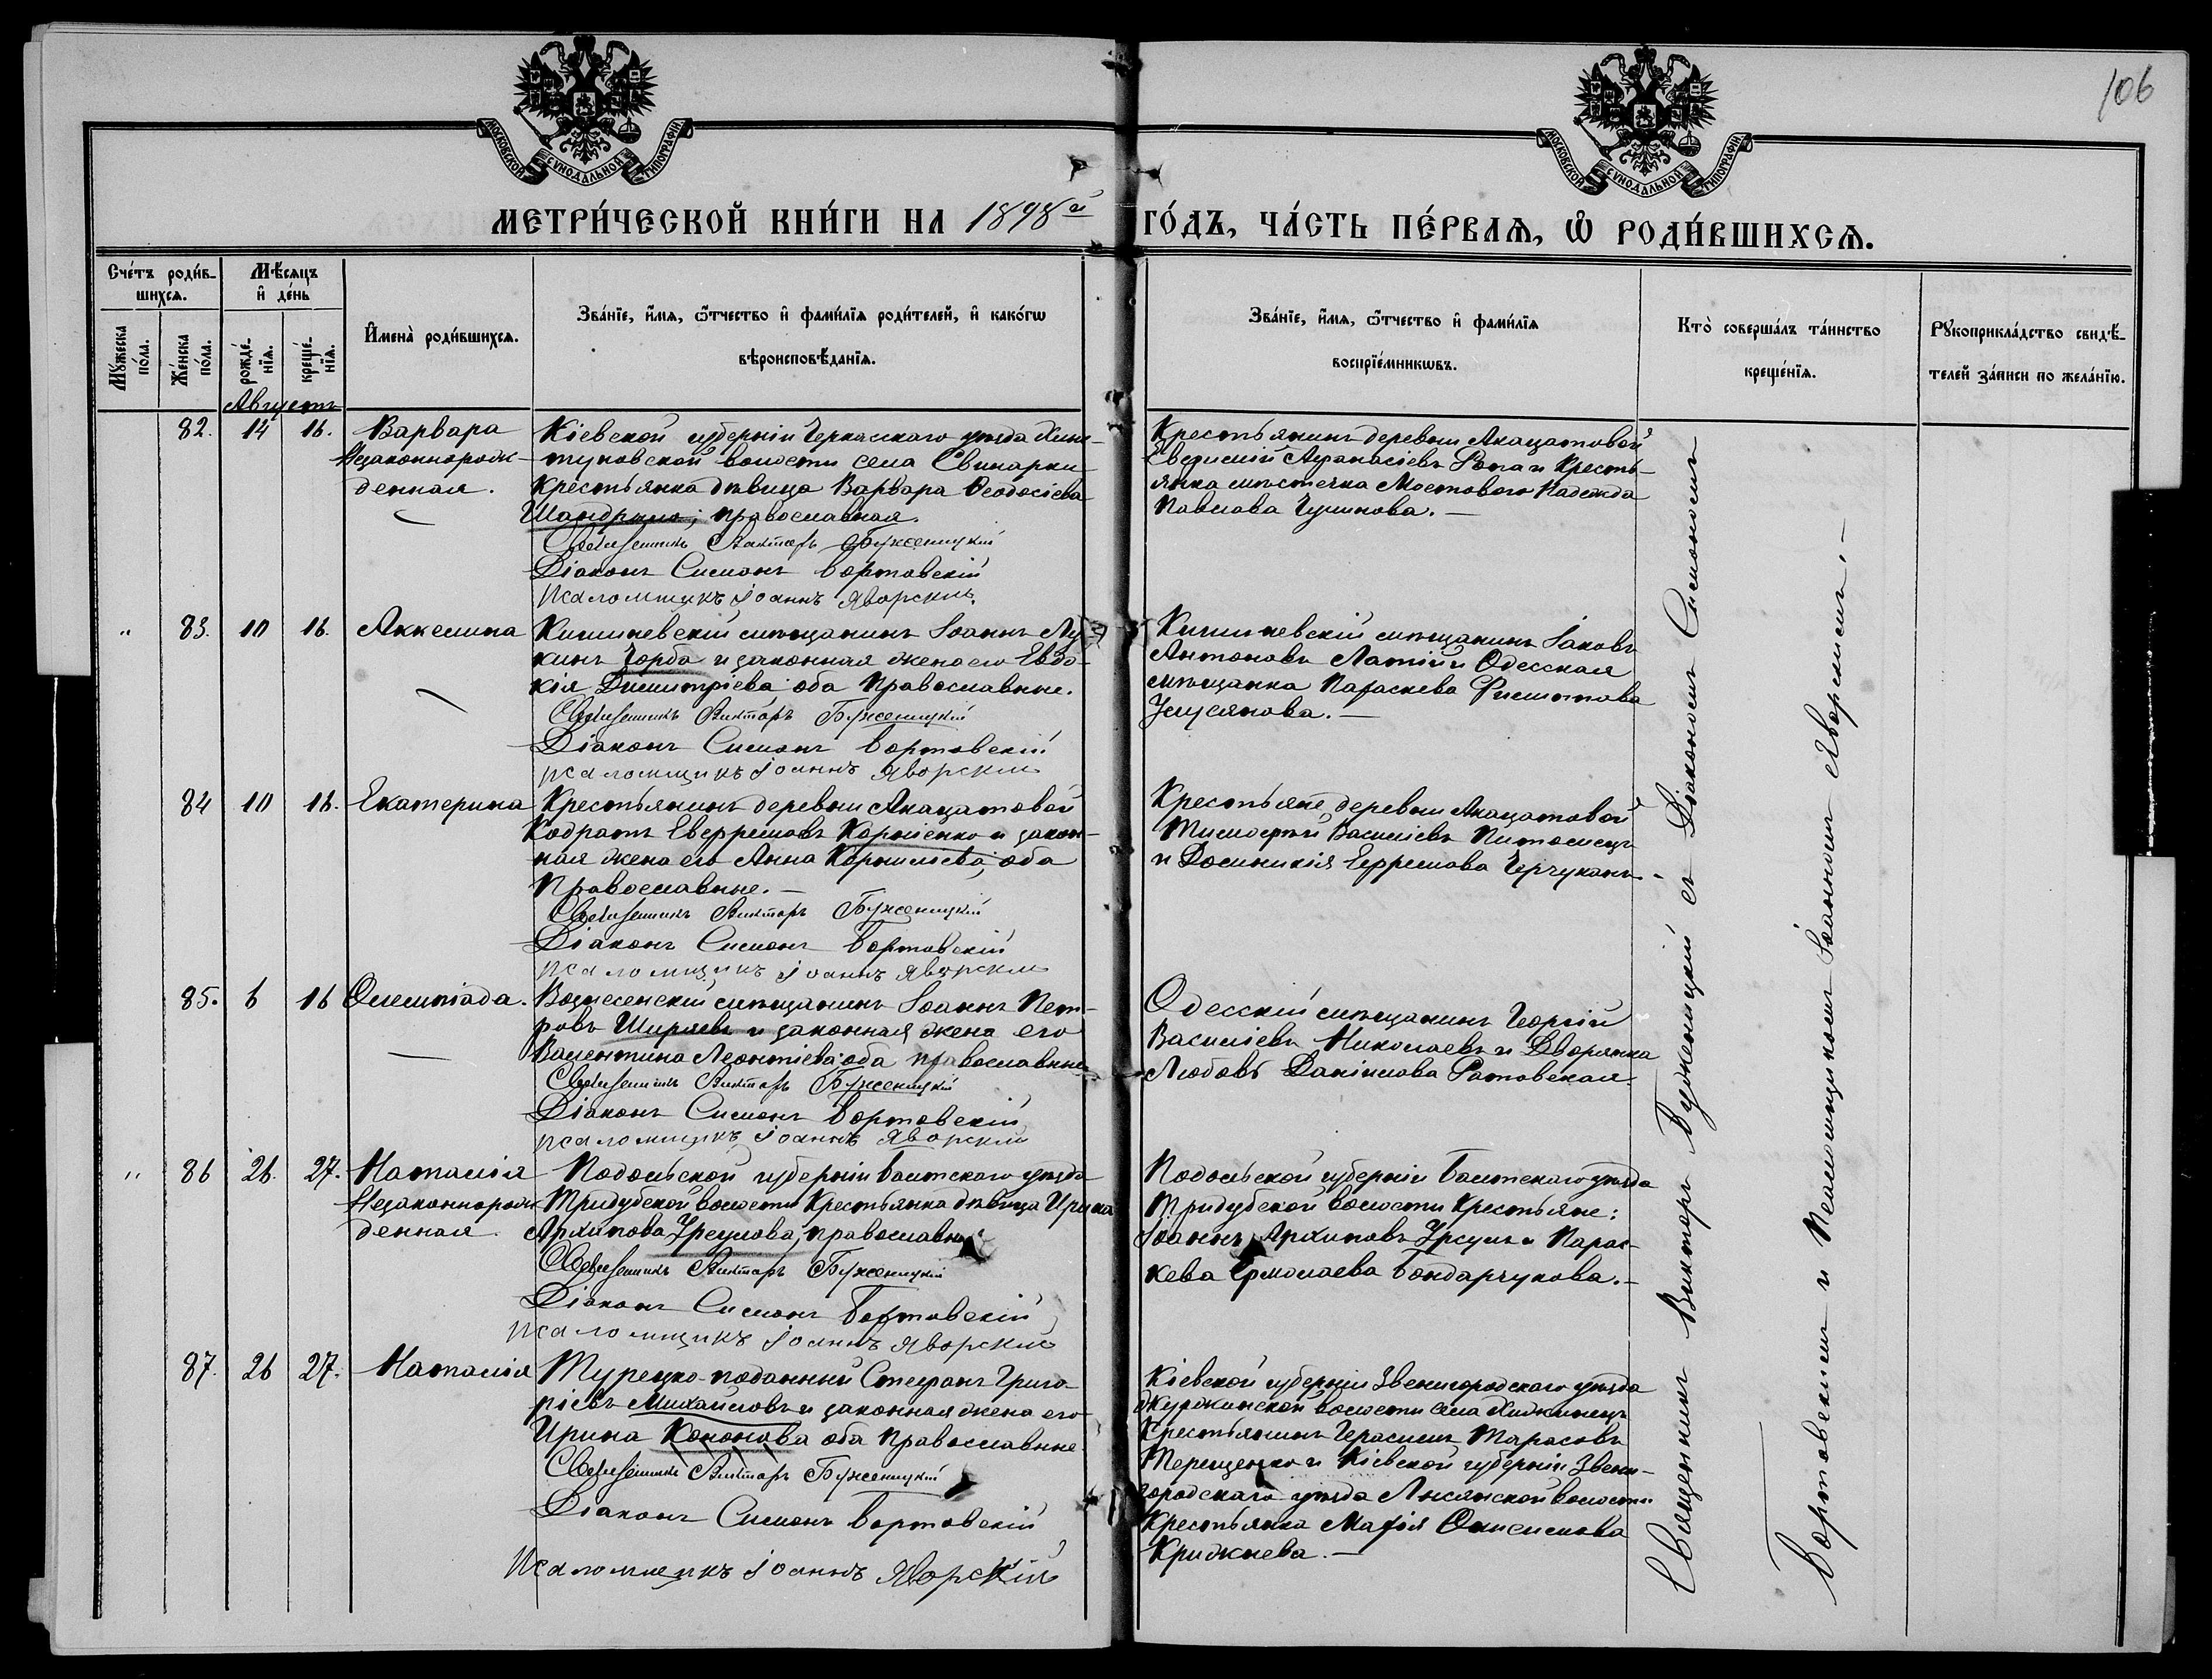 106
МОСКОВСКОЙ СѴНОДАЛЬНОЙ ТИПОГРАФІИ
МОСКОВСКОЙ СѴНОДАЛЬНОЙ ТИПОГРАФІИ
МЕТРИ́ЧЕСКОЙ КНИ́ГИ НА 1898й ГО́ДЪ, ЧА́СТЬ ПЕ́РВАѦ, Ѡ҆ РОДИ́ВШИХСѦ.
Сче́тъ роди́в-
шихсѧ.
Мѣ́сѧцъ
и҆ де́нь
Мꙋ́жеска по́ла.
Же́нска по́ла.
рожде́-
нїѧ.
креще́-
нїѧ.
И҆мена̀ роди́вшихсѧ.
Зва́нїе, и҆́мѧ, ѻ҆́тчество и҆ фами́лїѧ роди́телей, и҆ како́гѡ
вѣроисповѣ́данїѧ.
Зва́нїе, и҆́мѧ, ѻ҆́тчество и҆ фами́лїѧ
воспрїе́мникѡвъ.
Кто̀ соверша́лъ та́инство
креще́нїѧ.
Рꙋкоприкла́дство свидѣ́-
телей за́писи по жела́нїю.
Августъ
82. 14 16. Варвара
Незаконнорож-
денная.
Кіевской губерніи Черкасскаго уѣзда
волости села Свинарки
Крестьянка дѣвица Варвара Ѳеодосіева
православная.
Священникъ Викторъ Буженицкій
Діаконъ Симонъ Бортовскій
Псаломщикъ Іоаннъ Яворскій
Крестьянинъ деревни Акацатовой
Аѳанасіевъ и Кресть-
янка мѣстечка Мостового Надежда
Павлова
" 83. 10 16. Аккелина
Кишиневскій мѣщанинъ Іоаннъ Лу-
кинъ Чорба и законная жена его Евдо-
кія Димитріева оба Православные.
Священникъ Викторъ Буженицкій
Діаконъ Симонъ Бортовскій
Псаломщикъ Іоаннъ Яворскій
Кишиневскій мѣщанинъ Іаковъ
Антоновъ Латій и Одесская
мѣщанка Параскева
84 10 16. Екатерина
Крестьянинъ деревни Акацатовой
Кодратъ Евфремовъ Корніенко и закон-
ная жена его Анна Корнилева, оба
Православные.—
Священникъ Викторъ Буженицкій
Діаконъ Симонъ Бортовскій
Псаломщикъ Іоаннъ Яворскій
Крестьяне деревни Акацатовой
Тимофей Василіевъ Питомецъ
и Домникія Ефремова
85. 6 16 Олимпіада.
Вознесенскій мѣщанинъ Іоаннъ Пет-
ровъ Ширяевъ и законная жена его
Валентина Леонтіева оба православные
Священникъ Викторъ Буженицкій
Діаконъ Симонъ Бортовскій
Псаломщикъ Іоаннъ Яворскій
Одесскій мѣщанинъ Георгій
Василіевъ Николаевъ и Дворянка
Любовь Даніилова Ратовская.
" 86 26. 27. Наталія
Незаконнорож-
денная.
Подольской губерніи Балтскаго уѣзда
Тридубской волости Крестьянка дѣвица Ирина
Архипова Урсулова, православная
Священникъ Викторъ Буженицкій
Діаконъ Симонъ Бортовскій
Псаломщикъ Іоаннъ Яворскій
Подольской губерніи Балтскаго уѣзда
Тридубской волости Крестьяне:
Іоаннъ Архиповъ Урсулъ и Парас-
кева Ермолаева Бондарчукова.—
87. 26 27. Наталія
Турецко-подданный Стефанъ Григо-
ріевъ Михайловъ и законная жена его
Ирина Кононова оба Православные
Священникъ Викторъ Буженицкій
Діаконъ Симонъ Бортовскій
Псаломщикъ Іоаннъ Яворскій
Кіевской губерніи Звенигородскаго уѣзда
волости села
Крестьянинъ Герасимъ Тарасовъ
Терещенко и Кіевской губерніи Звени-
городскаго уѣзда Лысянской волости
Крестьянка Марія Онисимова
Крижнева.—
Священникъ Викторъ Буженицкій съ Діакономъ Симономъ
Бортовскимъ и Псаломщикомъ Іоанномъ Яворскимъ.—